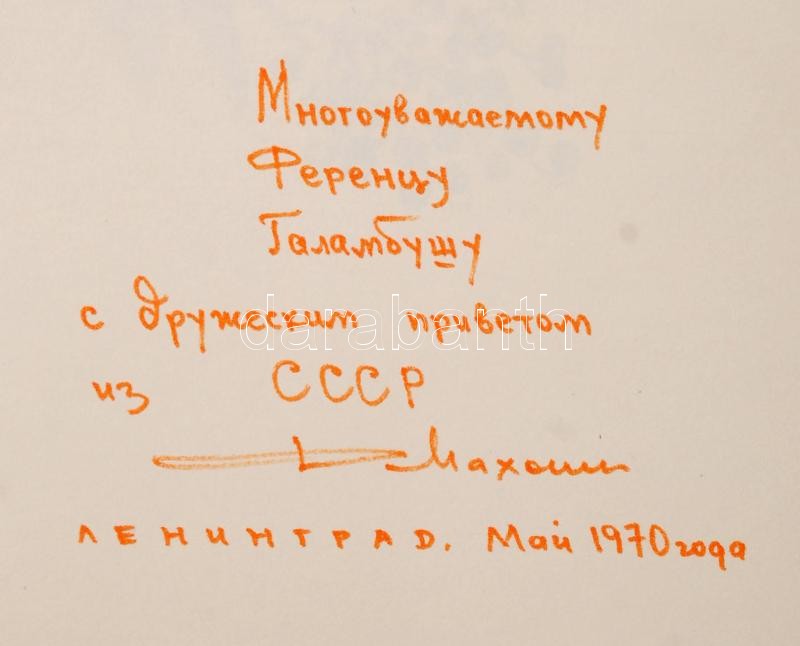 Многоуважаемому
Ференцу
Галамбушу
с дружеским приветом
darabanth
из СССР
ЛЕНИНГРАД. Май 1970 года